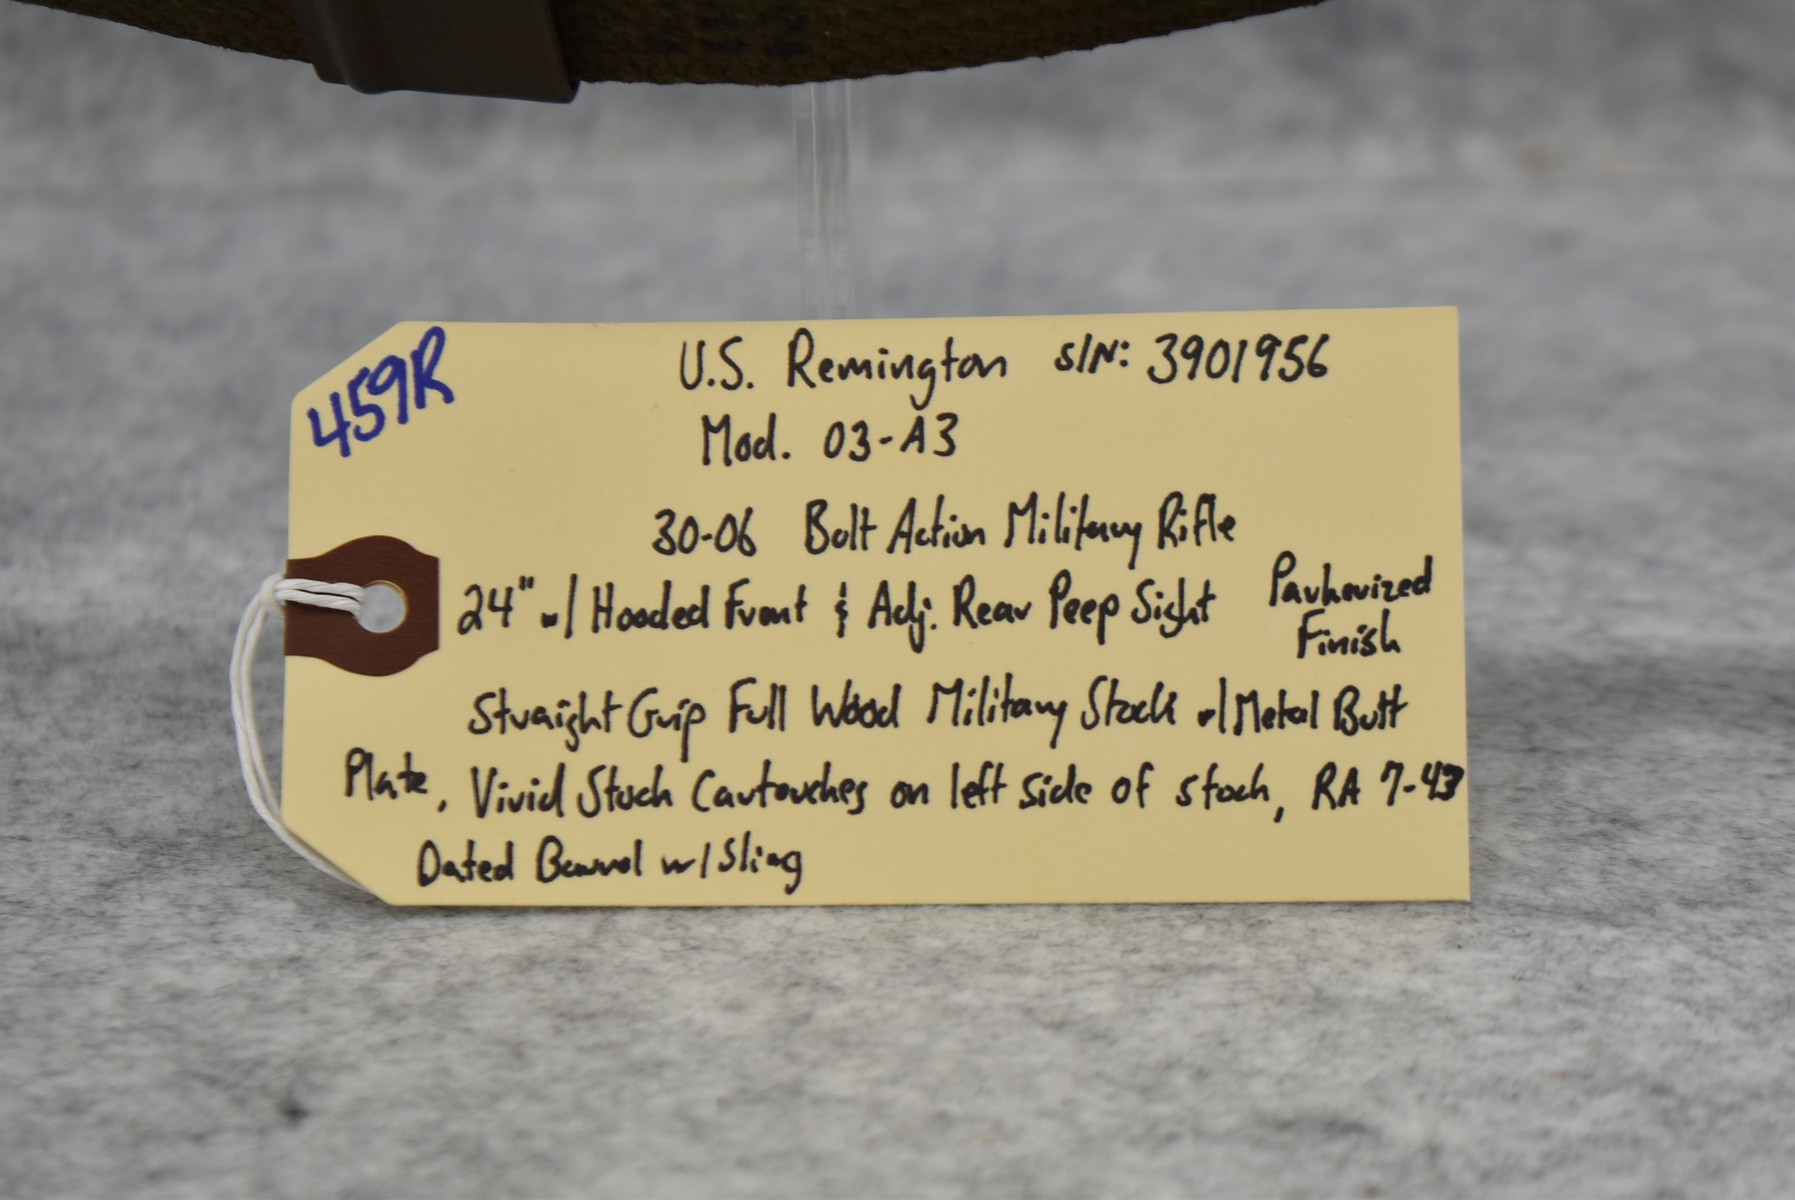 459R
U.S. Remington S/N: 3901956
Mod. 03-A3
30-06 Bolt Action Military Rifle
24" w/ Hooded Front & Adj. Rear Peep Sight Parkerized
Finish
Straight Grip Full Wood Military Stock w/ Metal Butt
Plate, Vivid Stock Cartouches on left side of stock, RA 7-43
Dated Barrel w/ Sling